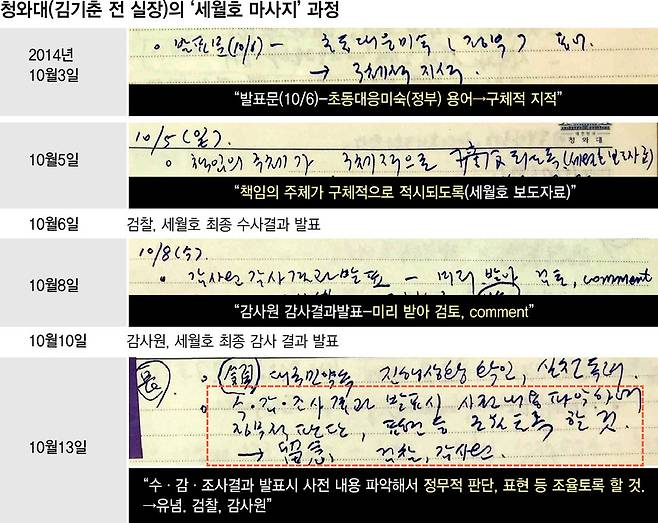 청와대(김기춘 전 실장)의 ‘세월호 마사지’ 과정
2014년
10월3일
발표문(10/6) – 초동대응미숙(정부) 용어
→ 구체적 지적.
“발표문(10/6)–초동대응미숙(정부) 용어→구체적 지적”
10월5일
10/5(일)
청와대
책임의 주체가 구체적으로 적시되도록(세월호 보도자료)
“책임의 주체가 구체적으로 적시되도록(세월호 보도자료)”
10월6일
검찰, 세월호 최종 수사결과 발표
10월8일
10/8(수)
감사원 감사결과발표 – 미리 받아 검토, comment
“감사원 감사결과발표–미리 받아 검토, comment”
10월10일
감사원, 세월호 최종 감사 결과 발표
10월13일
長
대국민약속 진행상황 확인, 실천
수·감·조사결과 발표시 사전내용 파악해서
정무적 판단, 표현 등 조율토록 할 것.
→ 留念, 검찰, 감사원.
“수·감·조사결과 발표시 사전 내용 파악해서 정무적 판단, 표현 등 조율토록 할 것.
→유념, 검찰, 감사원”